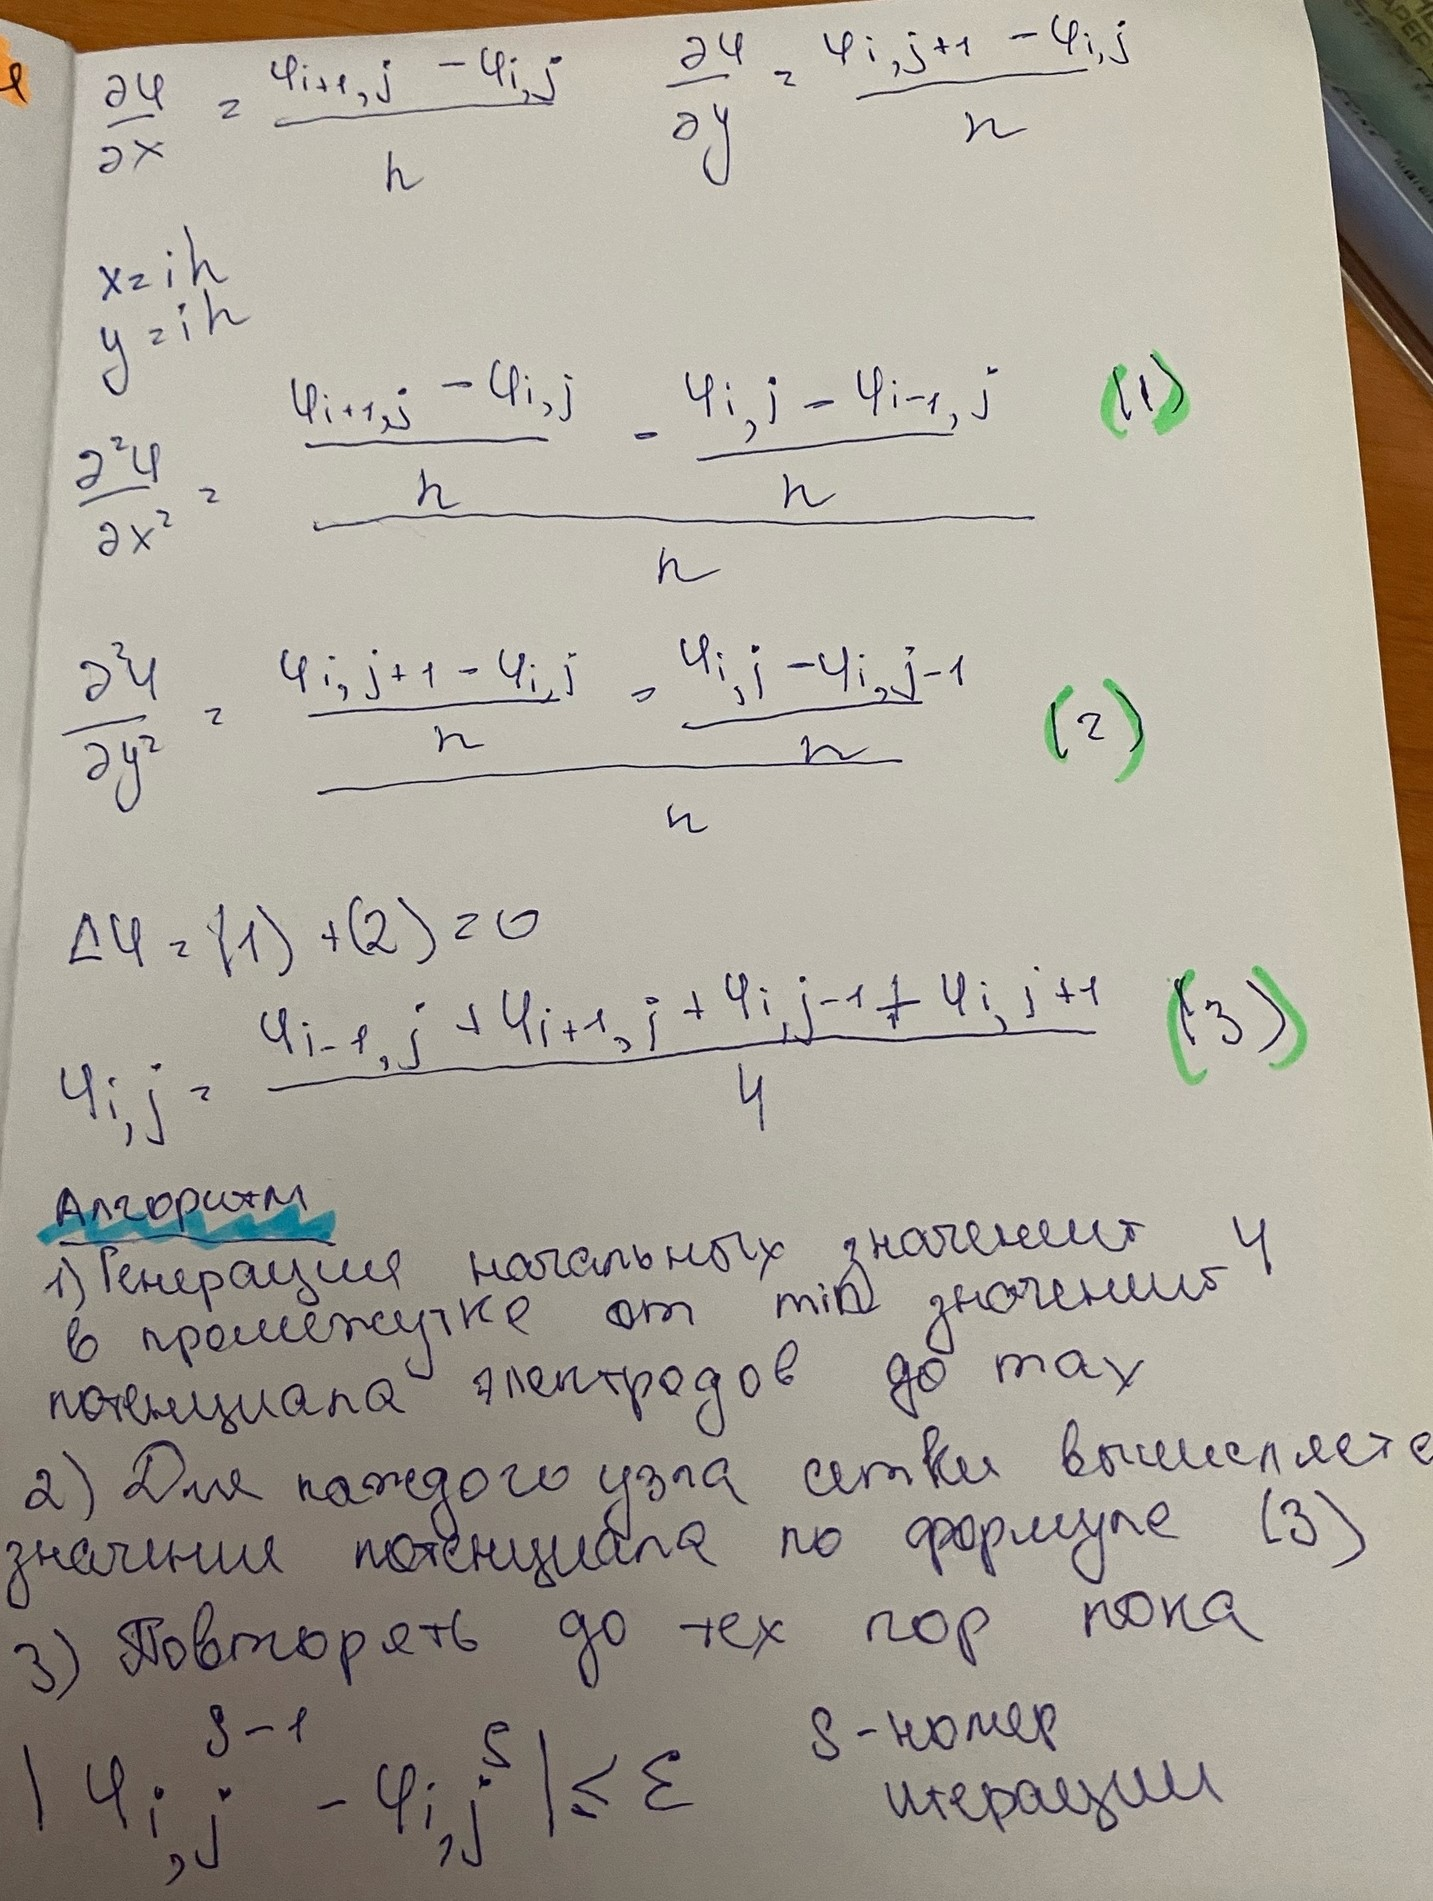 ∂φ/∂x = (φi+1,j - φi,j)/h ∂φ/∂y = (φi,j+1 - φi,j)/h
x=ih
y=ih
∂²φ/∂x² = ((φi+1,j - φi,j)/h - (φi,j - φi-1,j)/h)/h (1)
∂²φ/∂y² = ((φi,j+1 - φi,j)/h - (φi,j - φi,j-1)/h)/h (2)
Δφ = (1) + (2) = 0
φi,j = (φi-1,j + φi+1,j + φi,j-1 + φi,j+1)/4 (3)
Алгоритм
1) Генерация начальных значений φ
в промежутке от min значений
потенциала электродов до max
2) Для каждого узла сетки вычисляете
значение потенциала по формуле (3)
3) Повторять до тех пор пока
|φi,j^s-1 - φi,j^s| ≤ ε s-номер
итерации